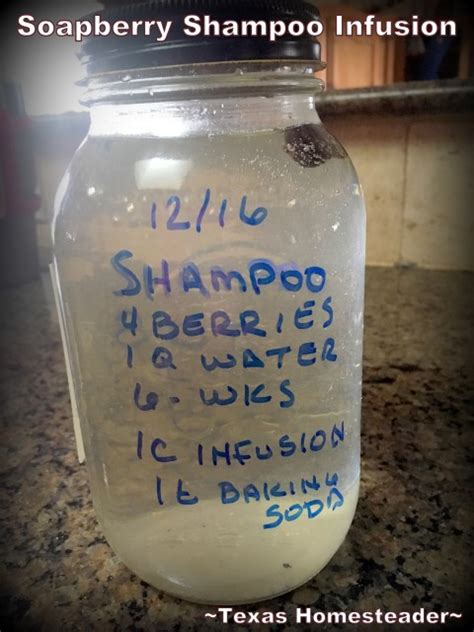 Soapberry Shampoo Infusion
12/16
SHAMPOO
4 BERRIES
1 Q WATER
6-WKS
1C INFUSION
1t BAKING
SODA
~Texas Homesteader~